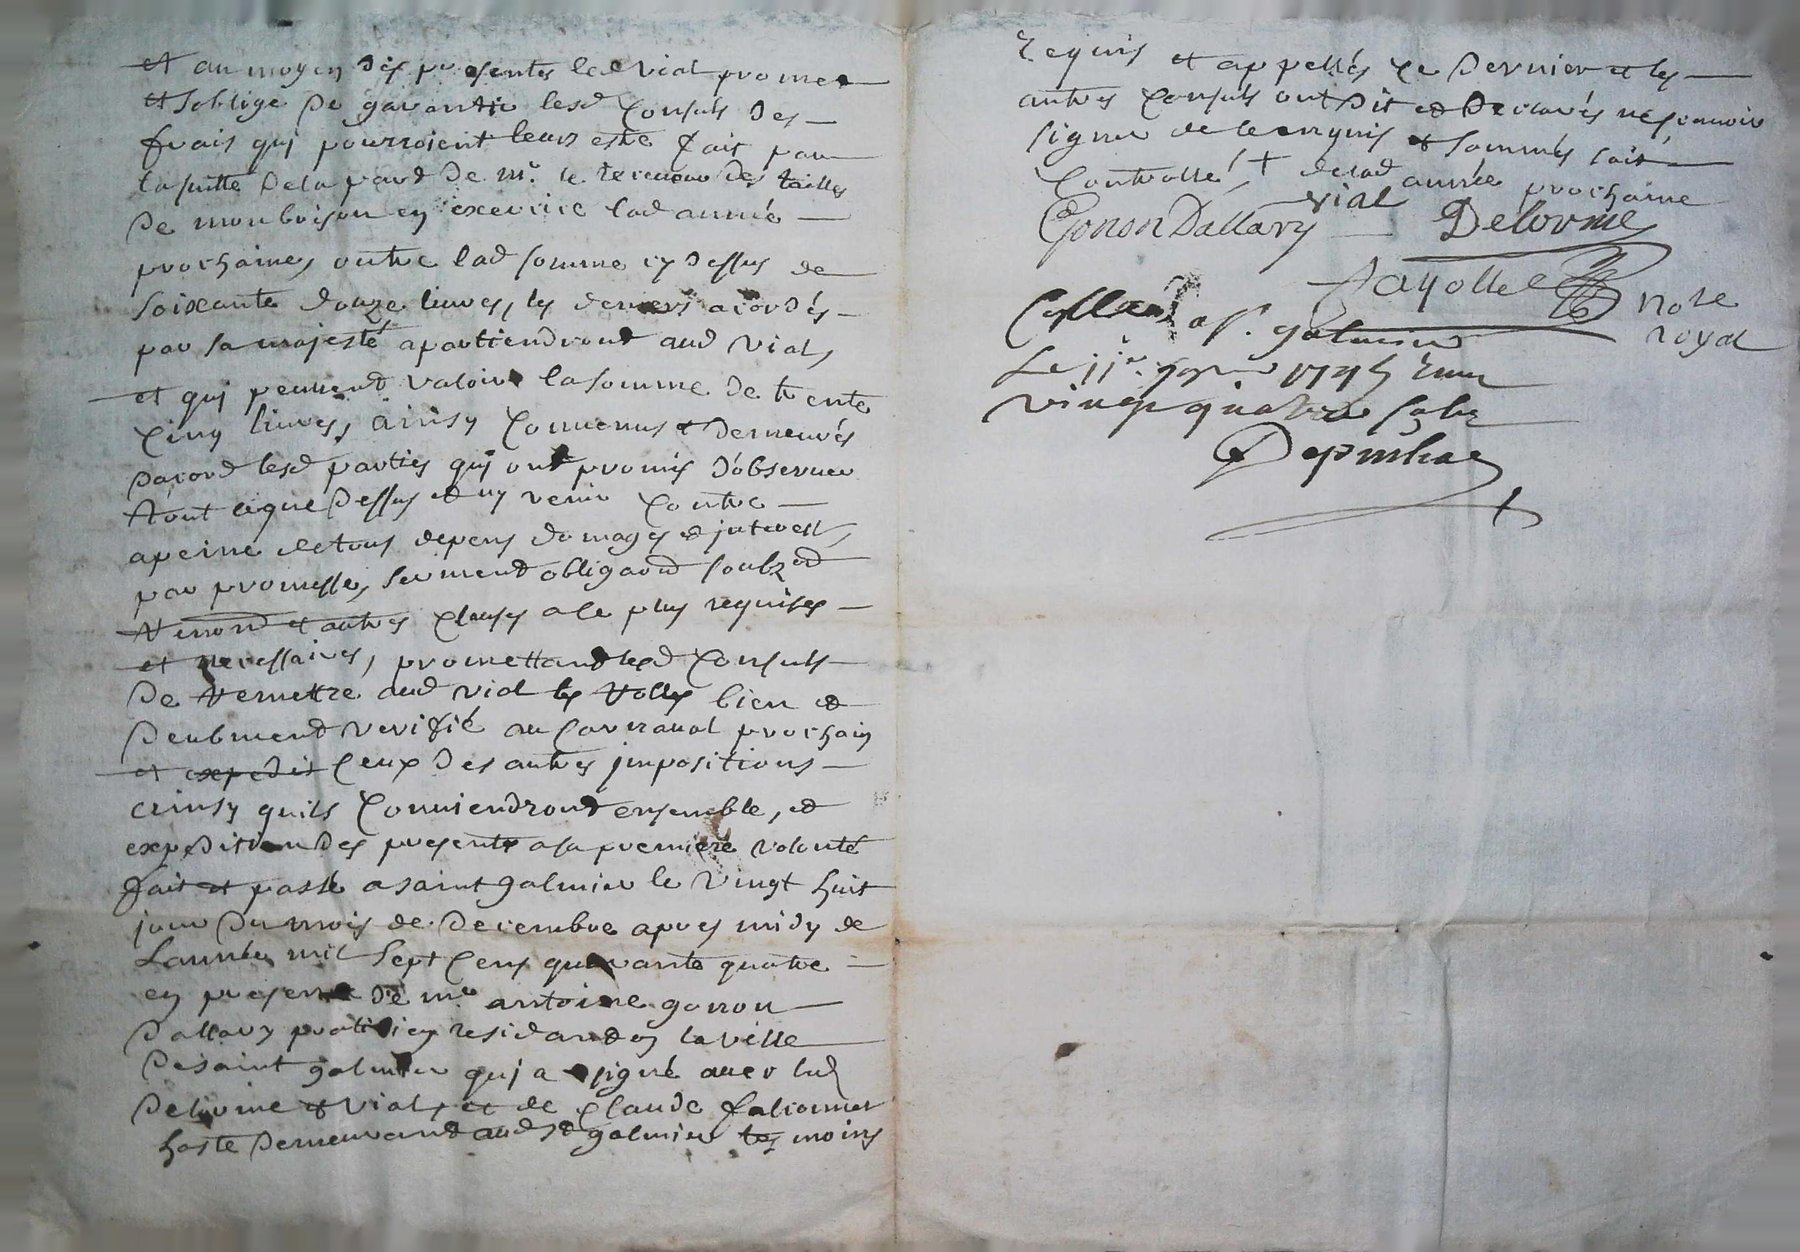 et au moyen des presentes led vial promet
et soblige de garantir lesd Consuls des
frais qui pourroient leurs estre fait par
la suitte de la part de mr. le receveur des tailles
de monbrison en exercice lad année
prochaine, outre lad somme cy dessus de
soixante douze livres, les deniers acordés
par sa majesté apartiendront aud vial,
et qui peuvent valoir la somme de trente
Cinq livres, ainsy Convenus et demeurés
dacord lesd parties qui ont promis d'observer
tout ceque dessus et ny venir Contre
apeine de tous depens domages et jnterest,
par promesse, serment obligaõn soubzõn
renonõn et autres Clauses a ce plus requises
et necessaires, promettand lesd Consuls
de remettre aud vial les rolles bien et
deubment verifié au Carnaval prochain
et ceux des autres jmpositions
ainsy quils Conviendront ensemble, et
expedition des presentes a sa premiere volonté
fait et passé a saint galmier le vingt huit
jour du mois de decembre apres midy de
Lannée mil sept Cens quarante quatre
en presence de me antoine gonon
dallary praticien residand en la ville
de saint galmier qui a signé avec lud
delorme et vial, et de Claude
hoste demeurand aud st galmier tesmoins
requis et appellés Ce dernier et les
autres Consuls ont dit et declarés ne sçavoir
signer de ce enquis et sommés soit
Controllé / + de lad année prochaine
vial
Gonon Dallary Delorme
fayolle nore
royal
a st. galmier
Le 11e 1745 Reçu
vingt quatre sols